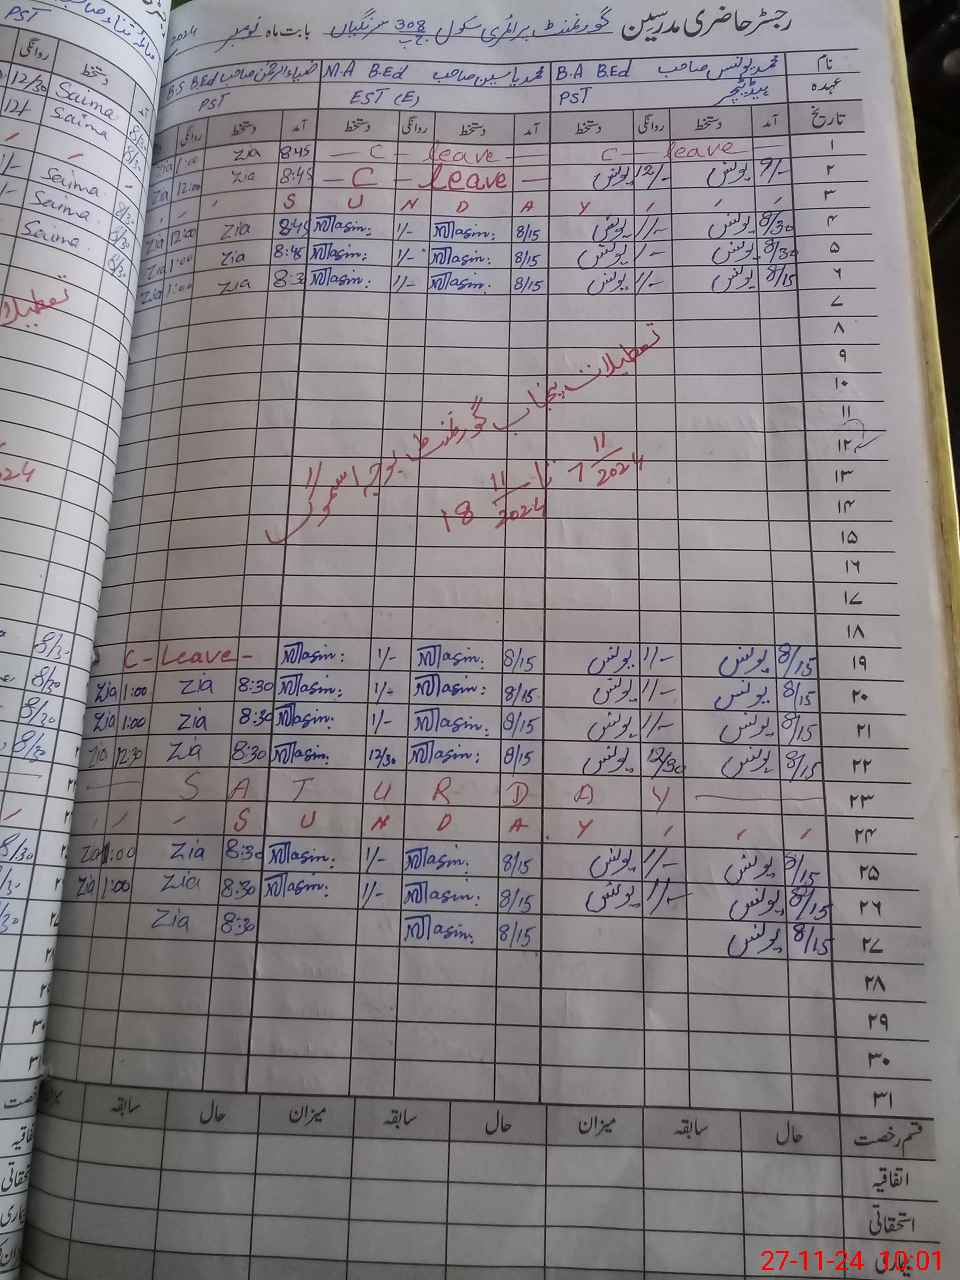 رجسٹر حاضری مدرسین گورنمنٹ پرائمری سکول 308 ج ب سرنگیاں بابت ماہ نومبر 2024
نام محمد یونس صاحب B.A B.Ed محمد یاسین صاحب M.A B.Ed ضیاء الرحمن صاحب B.S B.Ed
عہدہ ہیڈ ٹیچر PST EST (E) PST
تاریخ آمد دستخط روانگی دستخط آمد دستخط روانگی دستخط آمد دستخط روانگی
۱ — C — leave — — C — leave — 8:45 Zia 1:00 Zia
۲ 9/- یونس 12/- یونس — C — leave — 8:45 Zia 12:00 Zia
۳ S U N D A Y
۴ 8/30 یونس 1/- یونس 8/15 Yasin: 1/- Yasin: 8:45 Zia 12:00 Zia
۵ 8/30 یونس 1/- یونس 8/15 Yasin: 1/- Yasin: 8:45 Zia 1:00 Zia
۶ 8/15 یونس 1/- یونس 8/15 Yasin: 1/- Yasin: 8:3 Zia 1:00 Zia
۷
۸
۹
۱۰
۱۱
۱۲
۱۳
۱۴
۱۵
۱۶
۱۷
۱۸
تعطیلات پنجاب گورنمنٹ بوجہ سموگ
7 11/2024 تا 18 11/2024
۱۹ 8/15 یونس 1/- یونس 8/15 Yasin: 1/- Yasin: C - Leave -
۲۰ 8/15 یونس 1/- یونس 8/15 Yasin: 1/- Yasin: 8:30 Zia 1:00 Zia
۲۱ 8/15 یونس 1/- یونس 8/15 Yasin: 1/- Yasin: 8:30 Zia 1:00 Zia
۲۲ 8/15 یونس 12/30 یونس 8/15 Yasin: 12/30 Yasin: 8:30 Zia 12:30 Zia
۲۳ S A T U R D A Y
۲۴ S U N D A Y
۲۵ 8/15 یونس 1/- یونس 8/15 Yasin: 1/- Yasin: 8:30 Zia 1:00 Zia
۲۶ 8/15 یونس 1/- یونس 8/15 Yasin: 1/- Yasin: 8:30 Zia 1:00 Zia
۲۷ 8/15 یونس 8/15 Yasin: 8:30 Zia
۲۸
۲۹
۳۰
۳۱
قسم رخصت حال سابقہ میزان حال سابقہ میزان حال سابقہ
اتفاقیہ
استحقاقی
بیماری
PST
روانگی دستخط آمد
12/30 Saima 8/30
Saima 8/30
Saima 8/30
Saima 8/30
Saima 8/30
8/30
8/30
8/30
8/30
8/30
27-11-24 10:01